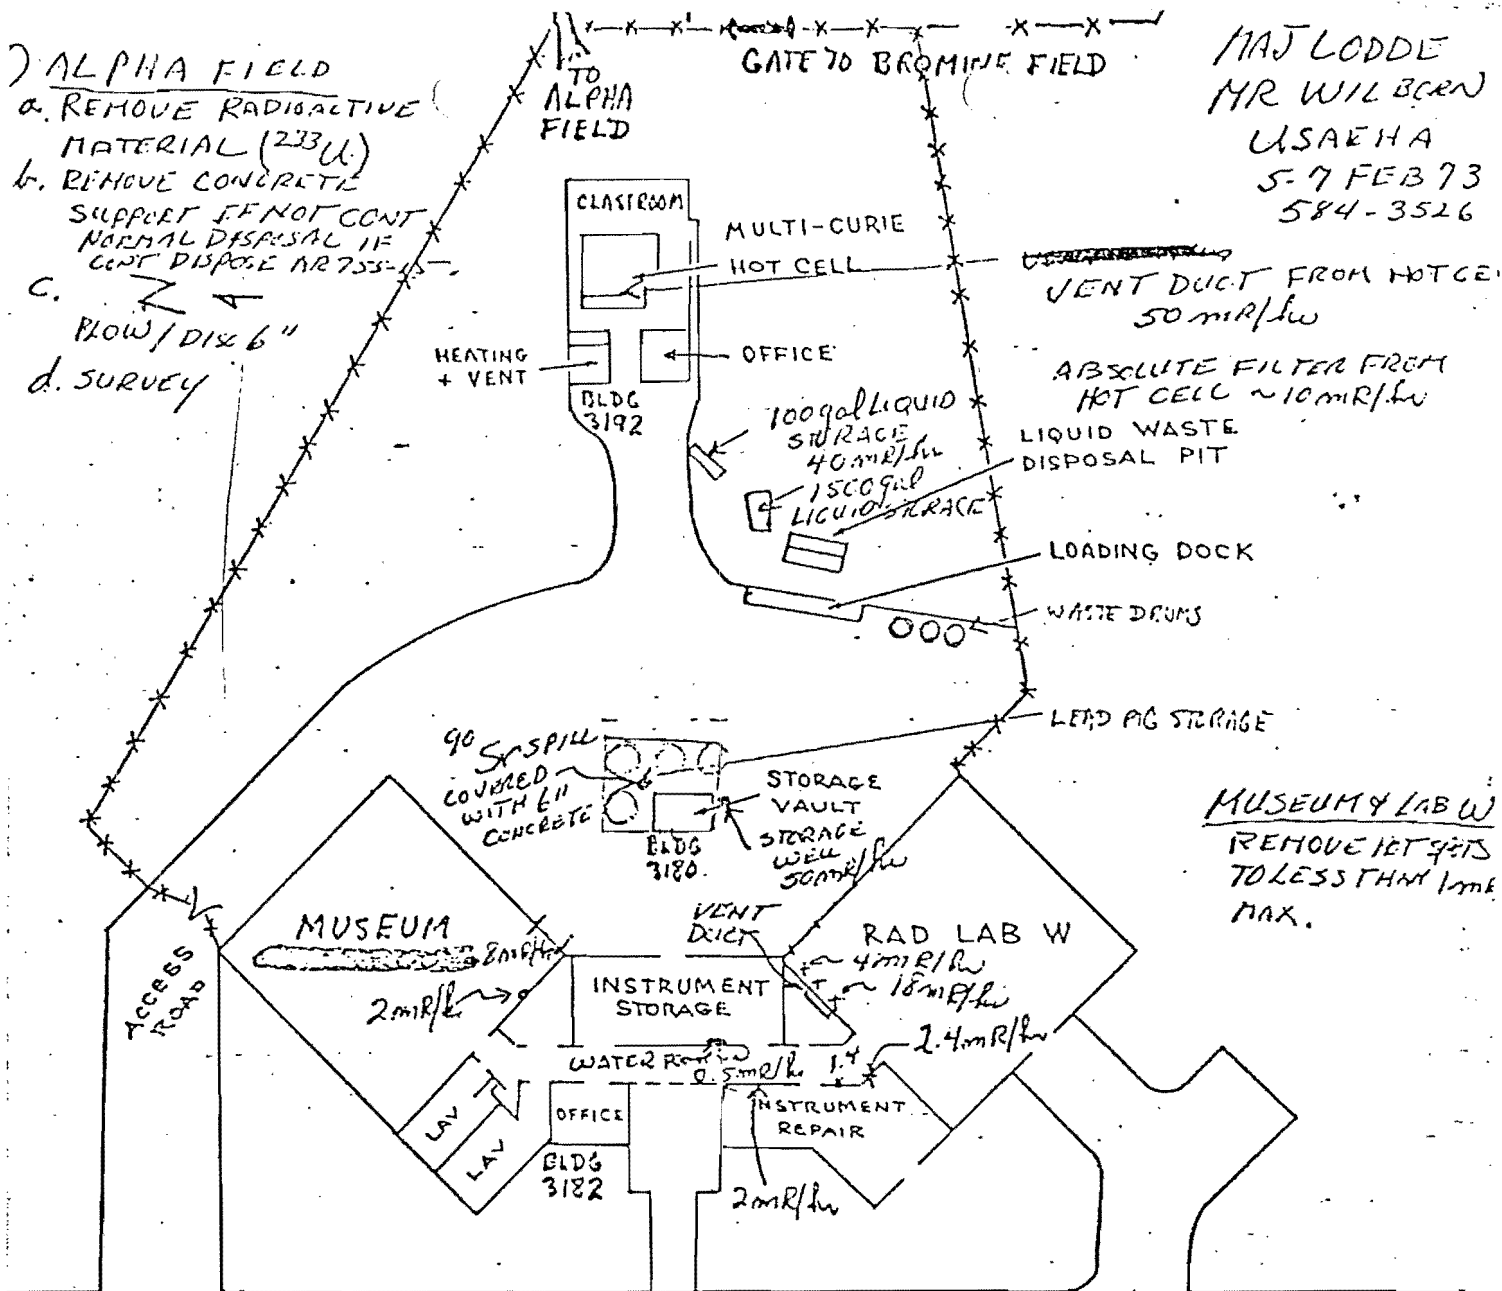 ) ALPHA FIELD
a. REMOVE RADIOACTIVE
MATERIAL (233U)
b. REMOVE CONCRETE
SUPPORT IF NOT CONT
NORMAL DISPOSAL IF
CONT DISPOSE AR 755-15-.
c.
PLOW/DISC 6"
d. SURVEY
TO
ALPHA
FIELD
GATE TO BROMINE FIELD
MAJ LODDE
MR WILBORN
USAEHA
5-7 FEB 73
584-3526
CLASSROOM
MULTI-CURIE
HOT CELL
VENT DUCT FROM HOT CE
50 mR/hr
HEATING
+ VENT
OFFICE
BLDG
3192
ABSOLUTE FILTER FROM
HOT CELL ~10mR/hr
100 gal LIQUID
STORAGE
40 mR/hr
1500 gal
LIQUID STORAGE
LIQUID WASTE
DISPOSAL PIT
LOADING DOCK
WASTE DRUMS
LEAD PIG STORAGE
90 Sr SPILL
COVERED
WITH 6"
CONCRETE
STORAGE
VAULT
BLDG
3180.
STORAGE
WELL
50mR/hr
MUSEUM & LAB W
REMOVE HOT SPOTS
TO LESS THAN 1 mR
MAX.
ACCESS
ROAD
MUSEUM
8mR/hr
2mR/hr
INSTRUMENT
STORAGE
VENT
DUCT
RAD LAB W
4mR/hr
18mR/hr
2.4mR/hr
WATER
0.5mR/hr
1.4
LAV
LAV
OFFICE
BLDG
3182
INSTRUMENT
REPAIR
2mR/hr